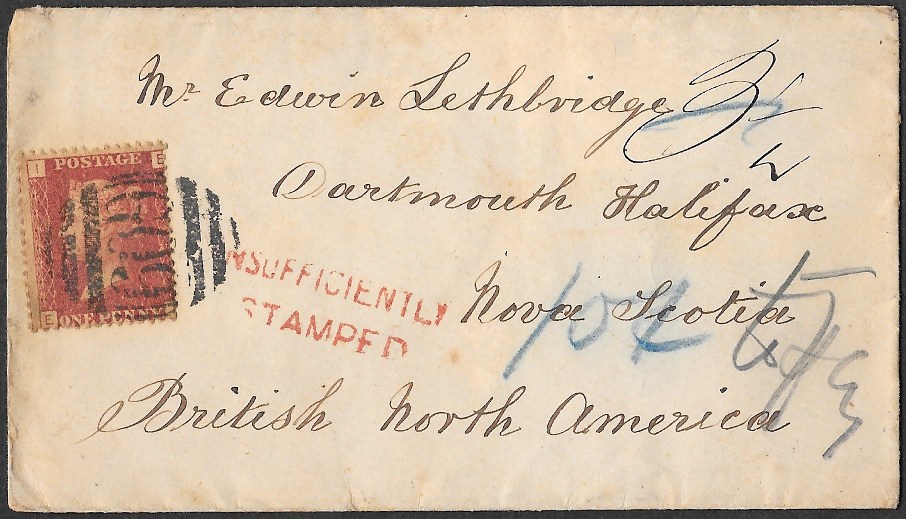 Mr Edwin Lethbridge
Dartmouth Halifax
Nova Scotia
British North America
I POSTAGE E
E ONE PENNY
INSUFFICIENTLY
STAMPED
3 1/2